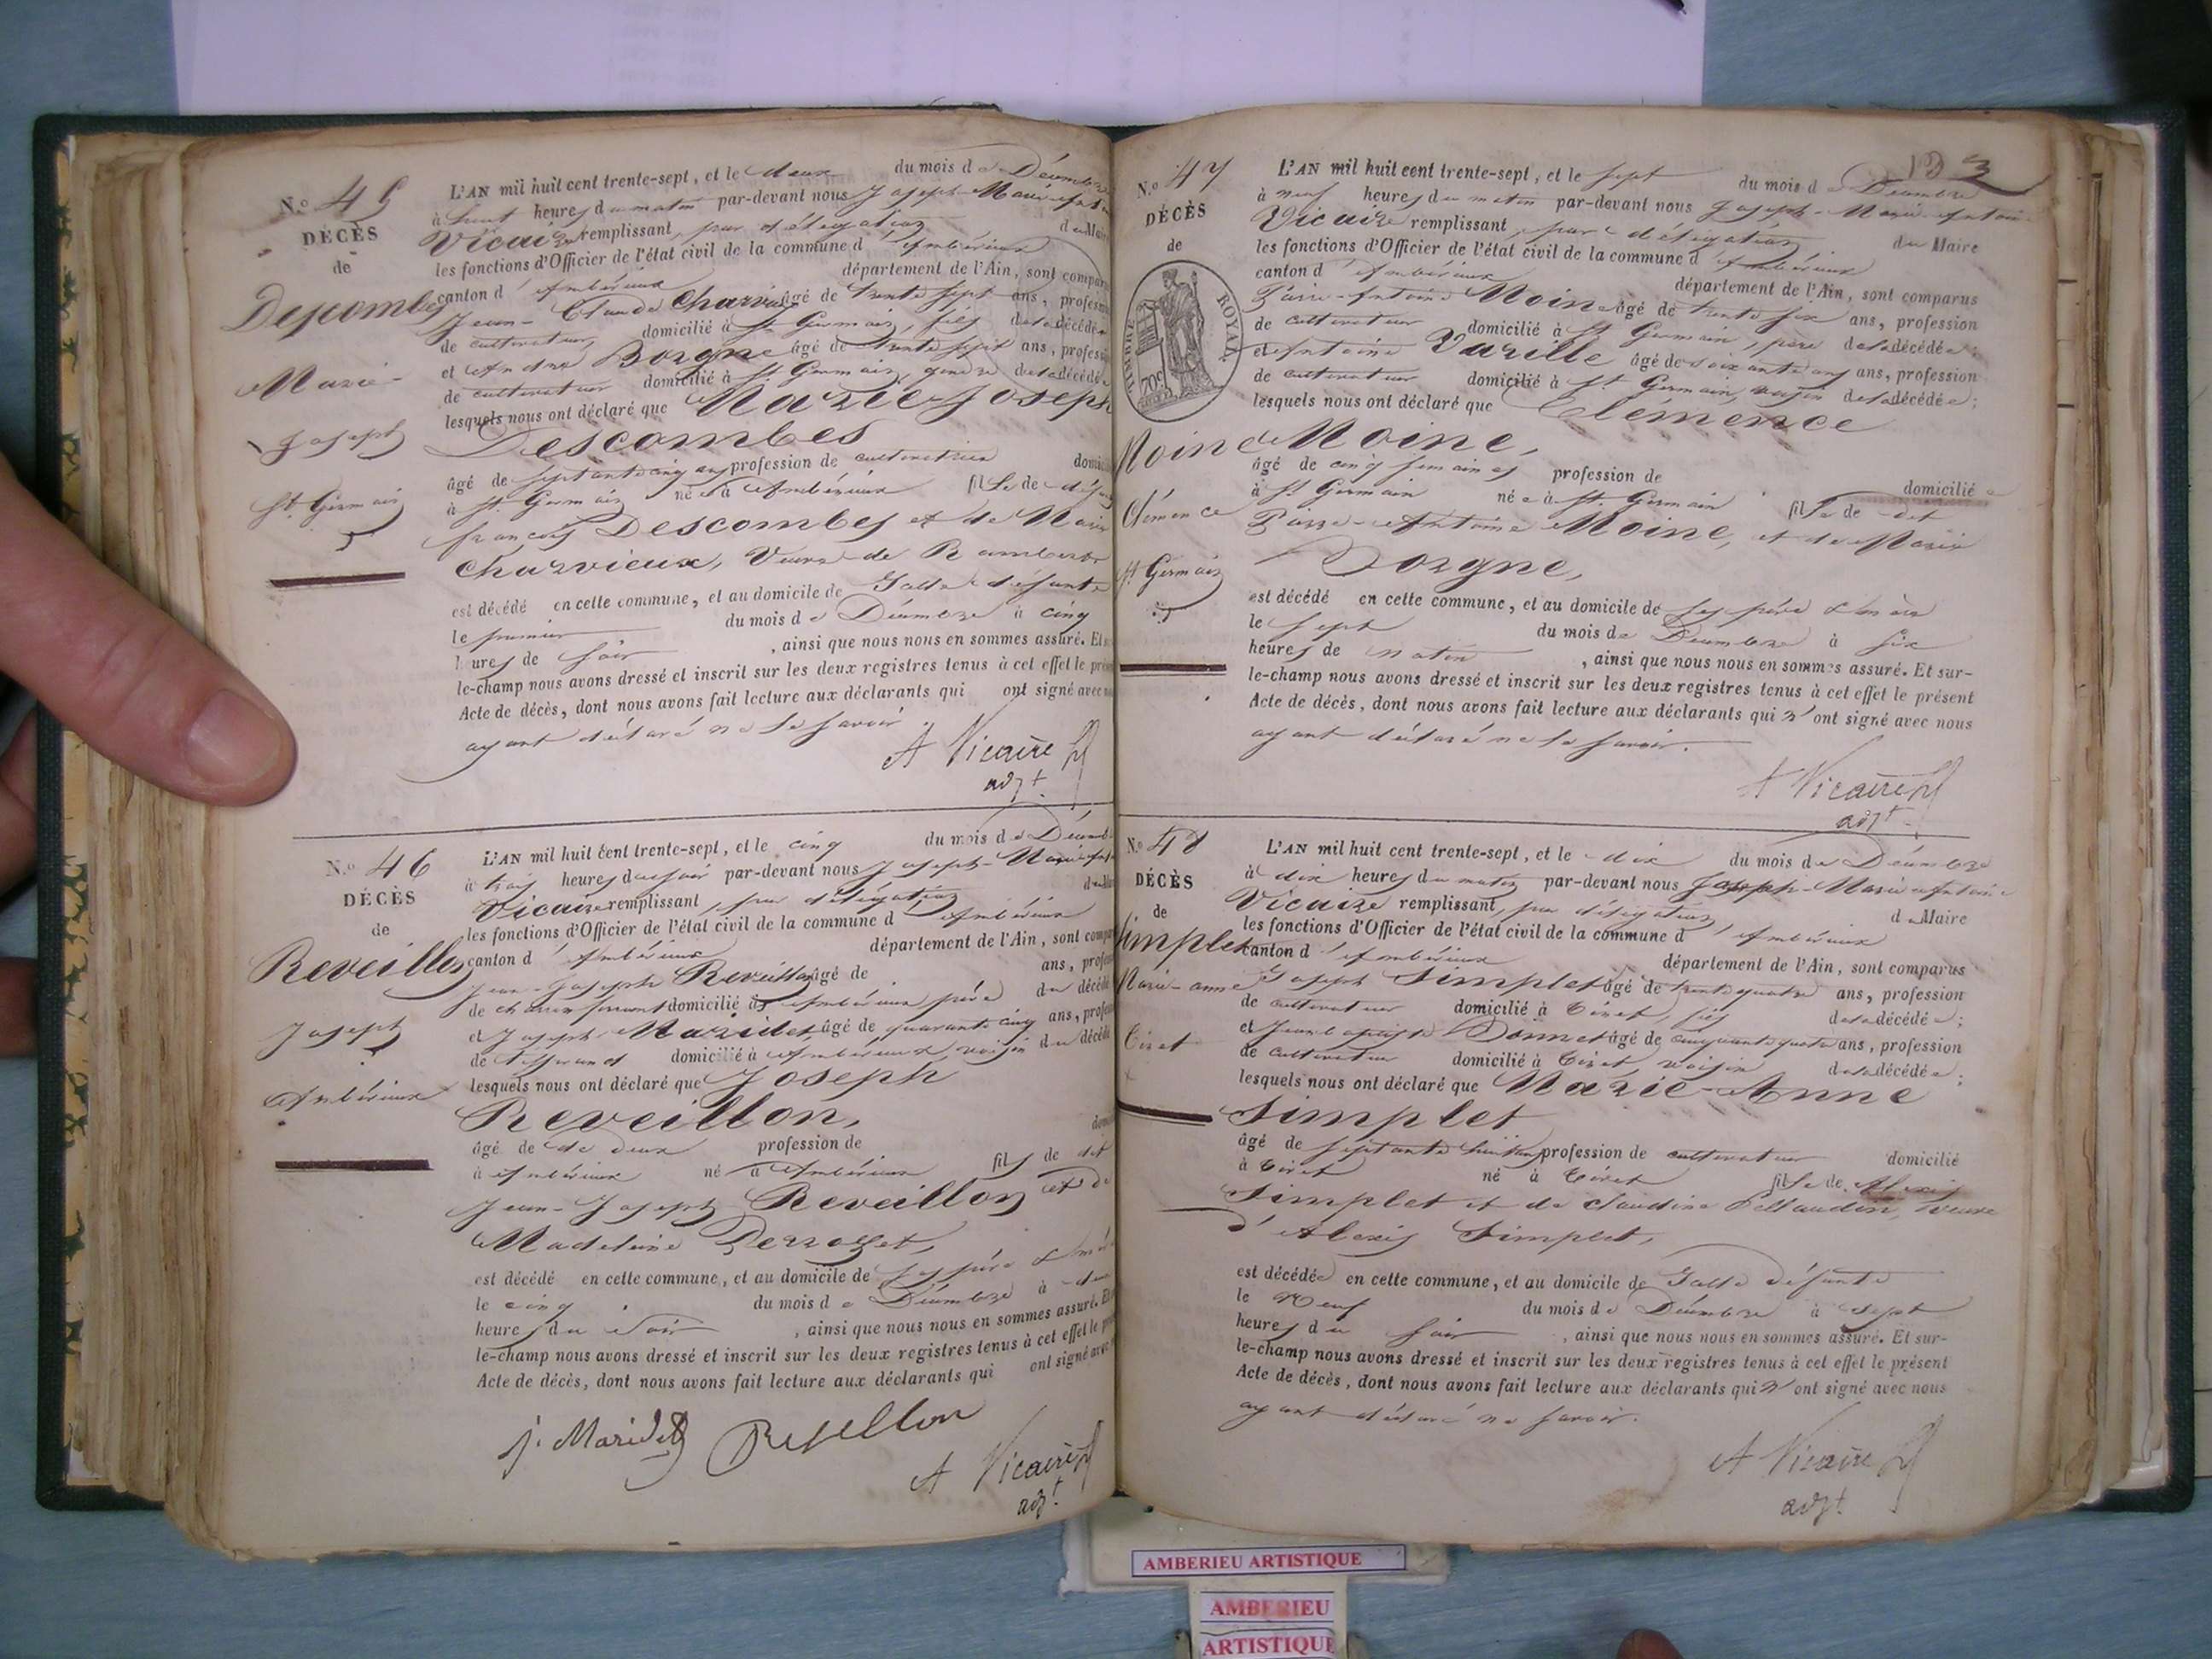 N.o 45
DÉCÈS
de
Descombes
Marie-
Joseph
St Germain
L'AN mil huit cent trente-sept, et le deux du mois de Décembre
à huit heures du matin par-devant nous Joseph-Marie-
Vicaire remplissant, par délégation du Maire
les fonctions d'Officier de l'état civil de la commune d'Ambérieux
canton d'Ambérieux département de l'Ain, sont
Jean-Claude âgé de trente sept ans,
de cultivateur domicilié à St Germain, fils de la décédée
et Andre Borgne âgé de trente sept ans,
de cultivateur domicilié à St Germain, gendre de la décédée
lesquels nous ont déclaré que Marie-Joseph
Descombes
âgé de septante cinq ans profession de cultivatrice
à St Germain née à Ambérieux fille de
françois Descombes et de Marie
Charvieux, Veuve de Rambert
est décédé en cette commune, et au domicile de défunte
le premier du mois de Décembre à cinq
heures de soir, ainsi que nous nous en sommes assuré. Et
le-champ nous avons dressé et inscrit sur les deux registres tenus à cet effet le
Acte de décès, dont nous avons fait lecture aux déclarants qui ont signé avec
ayant déclaré ne le savoir
A Vicaire
adjt
N.o 46
DÉCÈS
de
Reveillon
Joseph
Ambérieux
L'AN mil huit cent trente-sept, et le cinq du mois de
à trois heures du soir par-devant nous Joseph-
Vicaire remplissant, par délégation
les fonctions d'Officier de l'état civil de la commune d'Ambérieux
canton d'Ambérieux département de l'Ain, sont
Jean-Joseph Reveillon âgé de ans,
de domicilié à Ambérieux père du décédé
et Joseph Maridet, âgé de quarante cinq ans,
de tisserand domicilié à Ambérieux, voisin du décédé
lesquels nous ont déclaré que Joseph
Reveillon,
âgé de profession de
à Ambérieux né à Ambérieux fils de dit
Jean-Joseph Reveillon et de
Madeleine
est décédé en cette commune, et au domicile de ses père &
le cinq du mois de Décembre à
heures du soir, ainsi que nous nous en sommes assuré.
le-champ nous avons dressé et inscrit sur les deux registres tenus à cet effet le
Acte de décès, dont nous avons fait lecture aux déclarants qui ont signé
j. Maridet
A Vicaire
adjt
N.o 47
DÉCÈS
de
TIMBRE ROYAL
70c
Moine
Clémence
St Germain
L'AN mil huit cent trente-sept, et le sept du mois de Décembre
à neuf heures du matin par-devant nous Joseph-Marie-Antoine
Vicaire remplissant, par délégation du Maire
les fonctions d'Officier de l'état civil de la commune d'Ambérieux
canton d'Ambérieux département de l'Ain, sont comparus
Pierre-Antoine Moine âgé de trente six ans, profession
de cultivateur domicilié à St Germain, père de la décédée;
et Antoine âgé de soixante ans, profession
de cultivateur domicilié à St Germain, voisin de la décédée;
lesquels nous ont déclaré que Clémence
Moine,
âgé de cinq semaines profession de domicilié
à St Germain née à St. Germain fille de dit
Pierre-Antoine Moine, et de Marie
Borgne,
est décédé en cette commune, et au domicile de ses père & mère
le sept du mois de Décembre à six
heures de matin, ainsi que nous nous en sommes assuré. Et sur-
le-champ nous avons dressé et inscrit sur les deux registres tenus à cet effet le présent
Acte de décès, dont nous avons fait lecture aux déclarants qui n'ont signé avec nous
ayant déclaré ne le savoir.
A Vicaire
adjt
N.o 48
DÉCÈS
de
Simplet
Marie-anne
L'AN mil huit cent trente-sept, et le dix du mois de Décembre
à dix heures du matin par-devant nous Joseph-Marie Antoine
Vicaire remplissant, par délégation du Maire
les fonctions d'Officier de l'état civil de la commune d'Ambérieux
canton d'Ambérieux département de l'Ain, sont comparus
Joseph Simplet âgé de trente quatre ans, profession
de cultivateur domicilié à fils de la décédée;
et Jean Baptiste Bonnet âgé de cinquante quatre ans, profession
de cultivateur domicilié à voisin de la décédée;
lesquels nous ont déclaré que Marie-Anne
Simplet
âgé de septante huit ans profession de cultivateur domicilié
à né à fille de Alexis
Simplet et de Claudine veuve
d'Alexis Simplet,
est décédée en cette commune, et au domicile de défunte
le Neuf du mois de Décembre à sept
heures du soir, ainsi que nous nous en sommes assuré. Et sur-
le-champ nous avons dressé et inscrit sur les deux registres tenus à cet effet le présent
Acte de décès, dont nous avons fait lecture aux déclarants qui n'ont signé avec nous
ayant déclaré ne savoir.
A Vicaire
adjt
AMBERIEU ARTISTIQUE
AMBERIEU
ARTISTIQUE